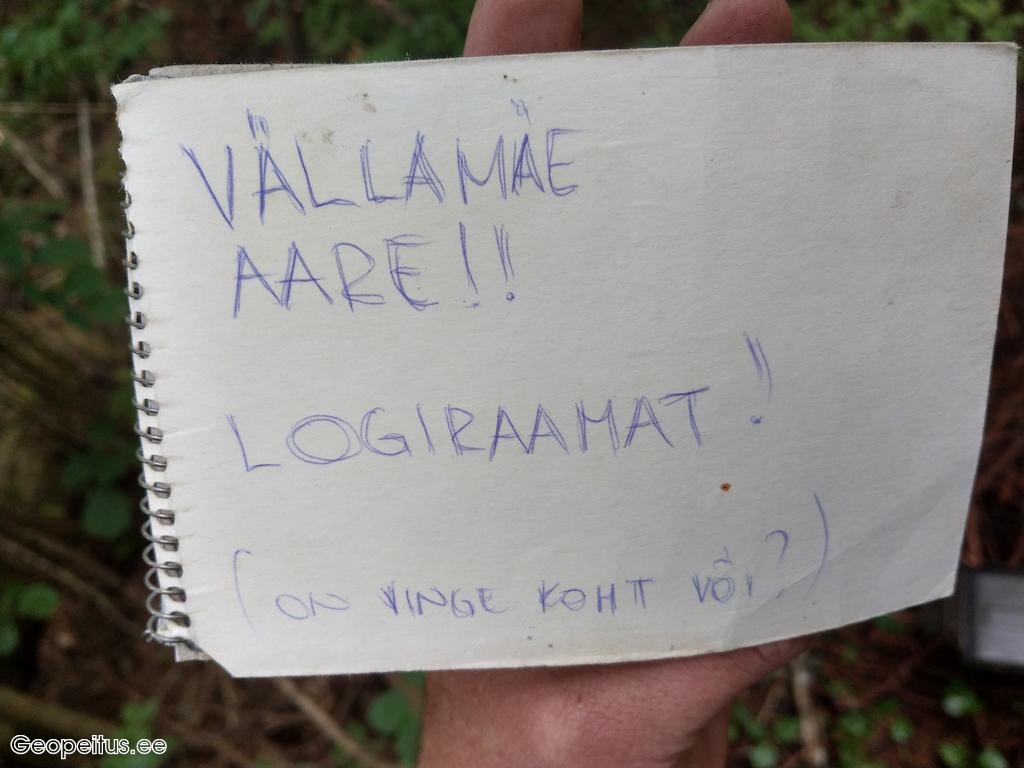 VÄLLAMÄE
AARE!!
LOGIRAAMAT!
(ON VINGE KOHT VÕI?)
Geopeitus.ee